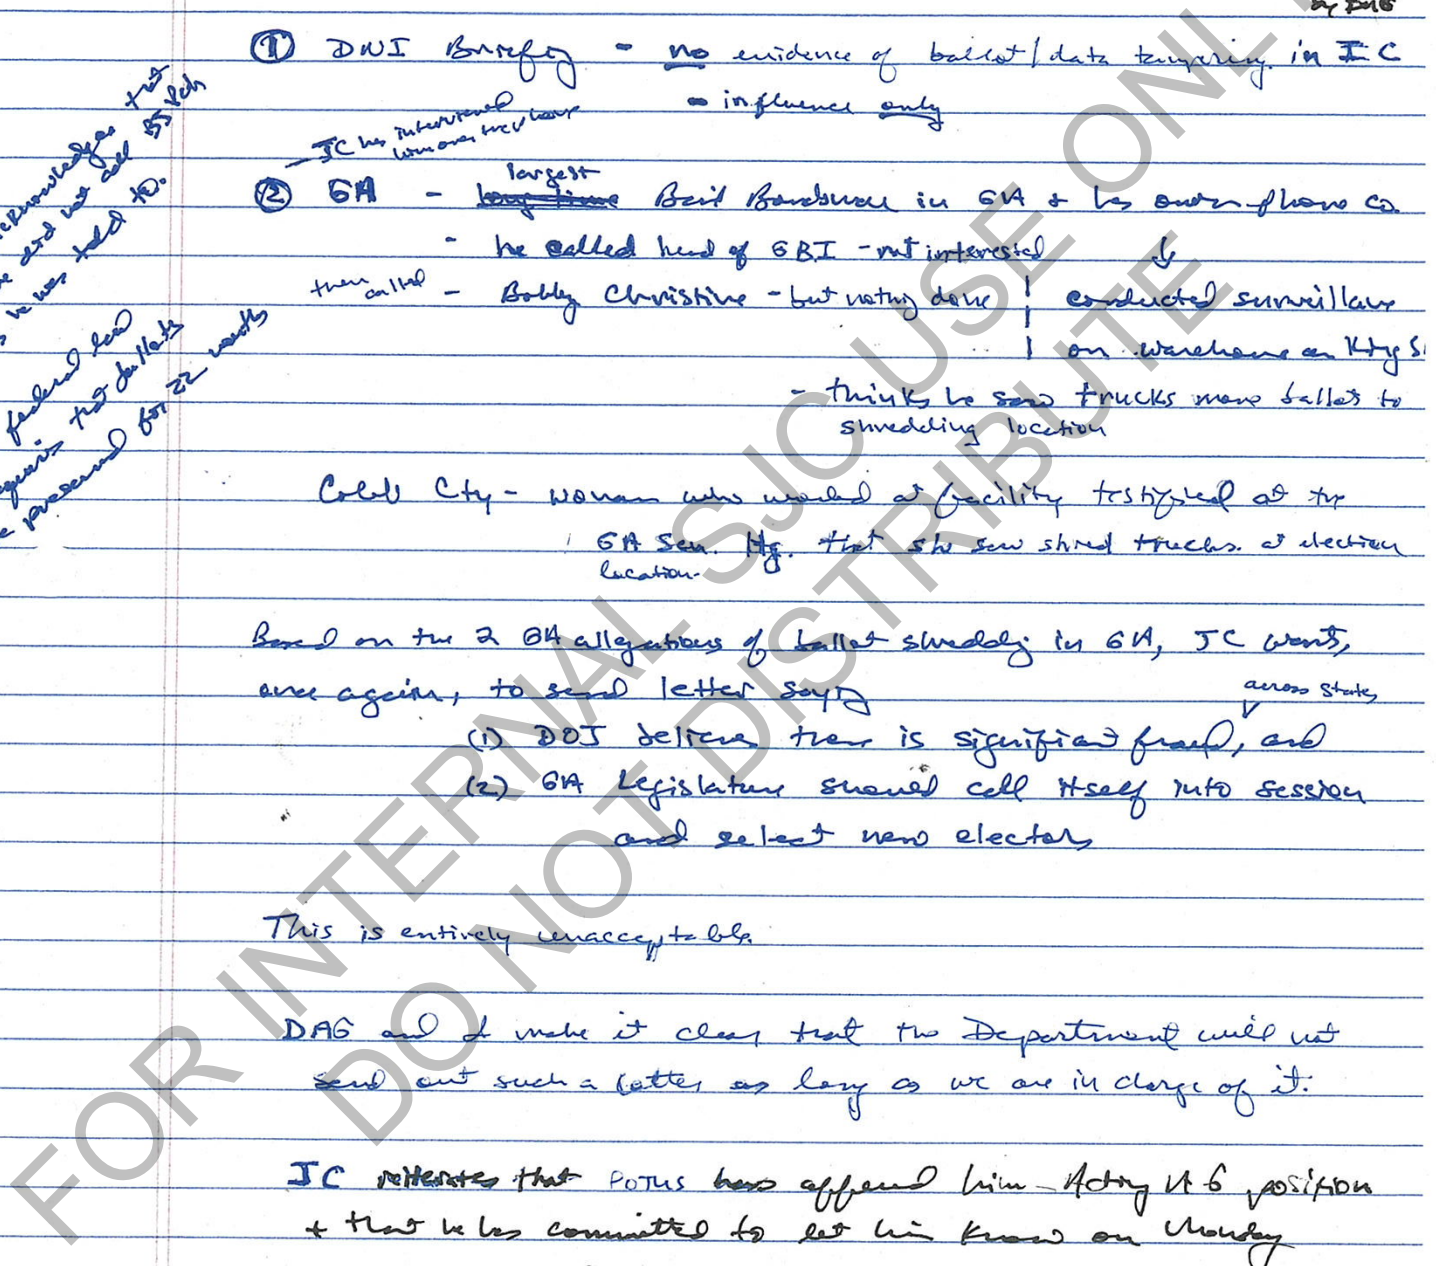 by DAG
① DNI Briefing - no evidence of ballot/data tampering in IC
- influence only
- JC has interviewed him over tel/
② GA - largest long time Bail Bondsman in GA + has owns phone co.
- he called head of GBI - not interested
then called - Bobby Christine - but nothing done
conducted surveillance
on warehouse on
- thinks he saw trucks move ballots to
shredding location
Cobb Cty - woman who worked at facility testified at the
GA Sen. Hg. that she saw shred trucks at election
location.
Based on the 2 GA allegations of ballot shredding in GA, JC wants,
once again, to send letter saying
across states
(1) DOJ believes there is significant fraud, and
(2) GA Legislature should call itself into session
and select new electors
This is entirely unacceptable.
DAG and I make it clear that the Department will not
send out such a letter as long as we are in charge of it.
JC reiterates that POTUS has offered him Acting AG position
+ that he has committed to let him know on Monday
acknowledges that
he did not call BJ Pak
as he was told to.
federal law
requires that ballots
be preserved for 22 months
FOR INTERNAL SJC USE ONL
DO NOT DISTRIBUTE